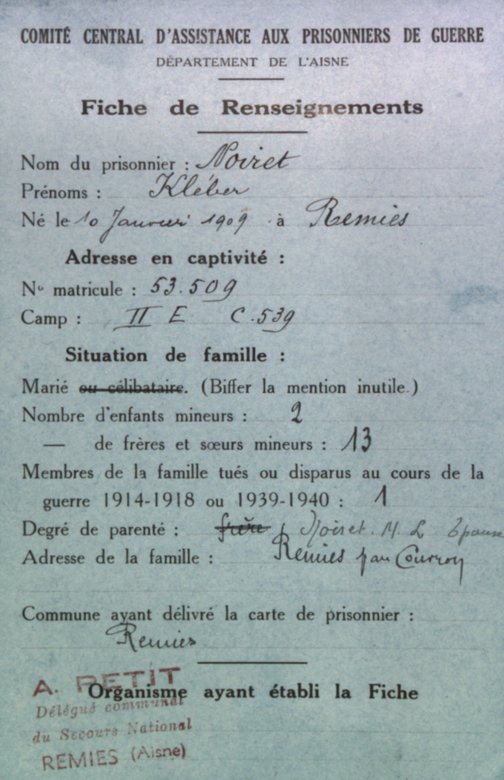 COMITÉ CENTRAL D'ASSISTANCE AUX PRISONNIERS DE GUERRE
DÉPARTEMENT DE L'AISNE
Fiche de Renseignements
Nom du prisonnier : Noiret
Prénoms : Kléber
Né le 10 Janvier 1909 à Remies
Adresse en captivité :
No matricule : 53.509
Camp : II E C.539
Situation de famille :
Marié ou célibataire. (Biffer la mention inutile.)
Nombre d'enfants mineurs : 2
— de frères et sœurs mineurs : 13
Membres de la famille tués ou disparus au cours de la
guerre 1914-1918 ou 1939-1940 : 1
Degré de parenté : frère Noiret M. L. Epouse
Adresse de la famille : Remies par Couvron
Commune ayant délivré la carte de prisonnier :
Remies
Organisme ayant établi la Fiche
A. PETIT
Délégué communal
du Secours National
REMIES (Aisne)